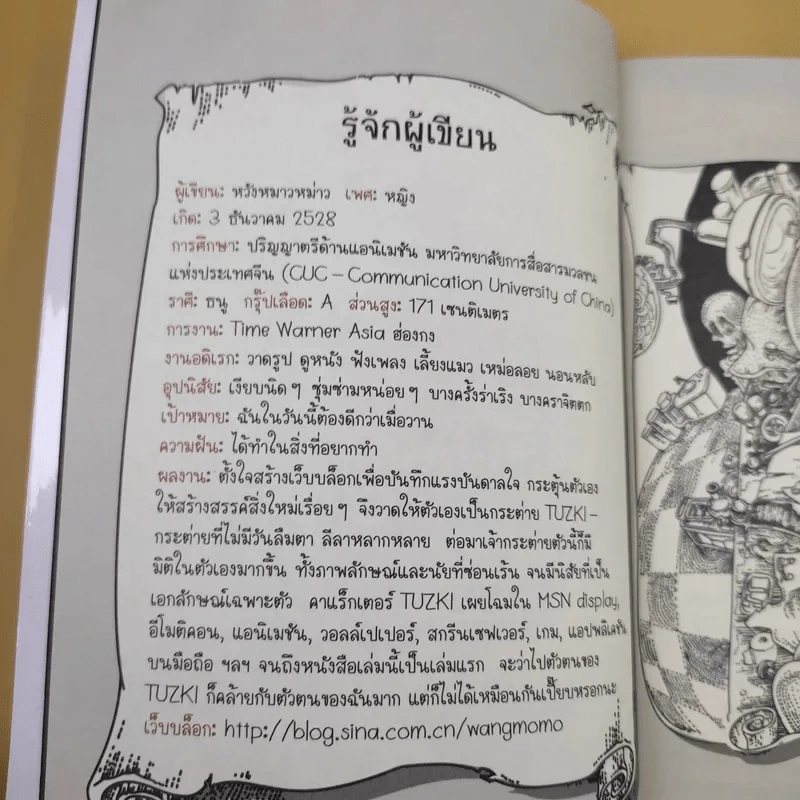 รู้จักผู้เขียน
ผู้เขียน: หวังหมาวหม่าว เพศ: หญิง
เกิด: 3 ธันวาคม 2528
การศึกษา: ปริญญาตรีด้านแอนิเมชัน มหาวิทยาลัยการสื่อสารมวลชน
แห่งประเทศจีน (CUC – Communication University of China)
ราศี: ธนู กรุ๊ปเลือด: A ส่วนสูง: 171 เซนติเมตร
การงาน: Time Warner Asia ฮ่องกง
งานอดิเรก: วาดรูป ดูหนัง ฟังเพลง เลี้ยงแมว เหม่อลอย นอนหลับ
อุปนิสัย: เงียบนิดๆ ซุ่มซ่ามหน่อยๆ บางครั้งร่าเริง บางคราจิตตก
เป้าหมาย: ฉันในวันนี้ต้องดีกว่าเมื่อวาน
ความฝัน: ได้ทำในสิ่งที่อยากทำ
ผลงาน: ตั้งใจสร้างเว็บบล็อกเพื่อบันทึกแรงบันดาลใจ กระตุ้นตัวเอง
ให้สร้างสรรค์สิ่งใหม่เรื่อยๆ จึงวาดให้ตัวเองเป็นกระต่าย TUZKI –
กระต่ายที่ไม่มีวันลืมตา ลีลาหลากหลาย ต่อมาเจ้ากระต่ายตัวนี้ก็มี
มิติในตัวเองมากขึ้น ทั้งภาพลักษณ์และนัยที่ซ่อนเร้น จนมีนิสัยที่เป็น
เอกลักษณ์เฉพาะตัว คาแร็กเตอร์ TUZKI เผยโฉมใน MSN display,
อีโมติคอน, แอนิเมชัน, วอลล์เปเปอร์, สกรีนเซฟเวอร์, เกม, แอปพลิเคชัน
บนมือถือ ฯลฯ จนถึงหนังสือเล่มนี้เป็นเล่มแรก จะว่าไปตัวตนของ
TUZKI ก็คล้ายกับตัวตนของฉันมาก แต่ก็ไม่ได้เหมือนกันเปี๊ยบหรอกนะ
เว็บบล็อก: http://blog.sina.com.cn/wangmomo